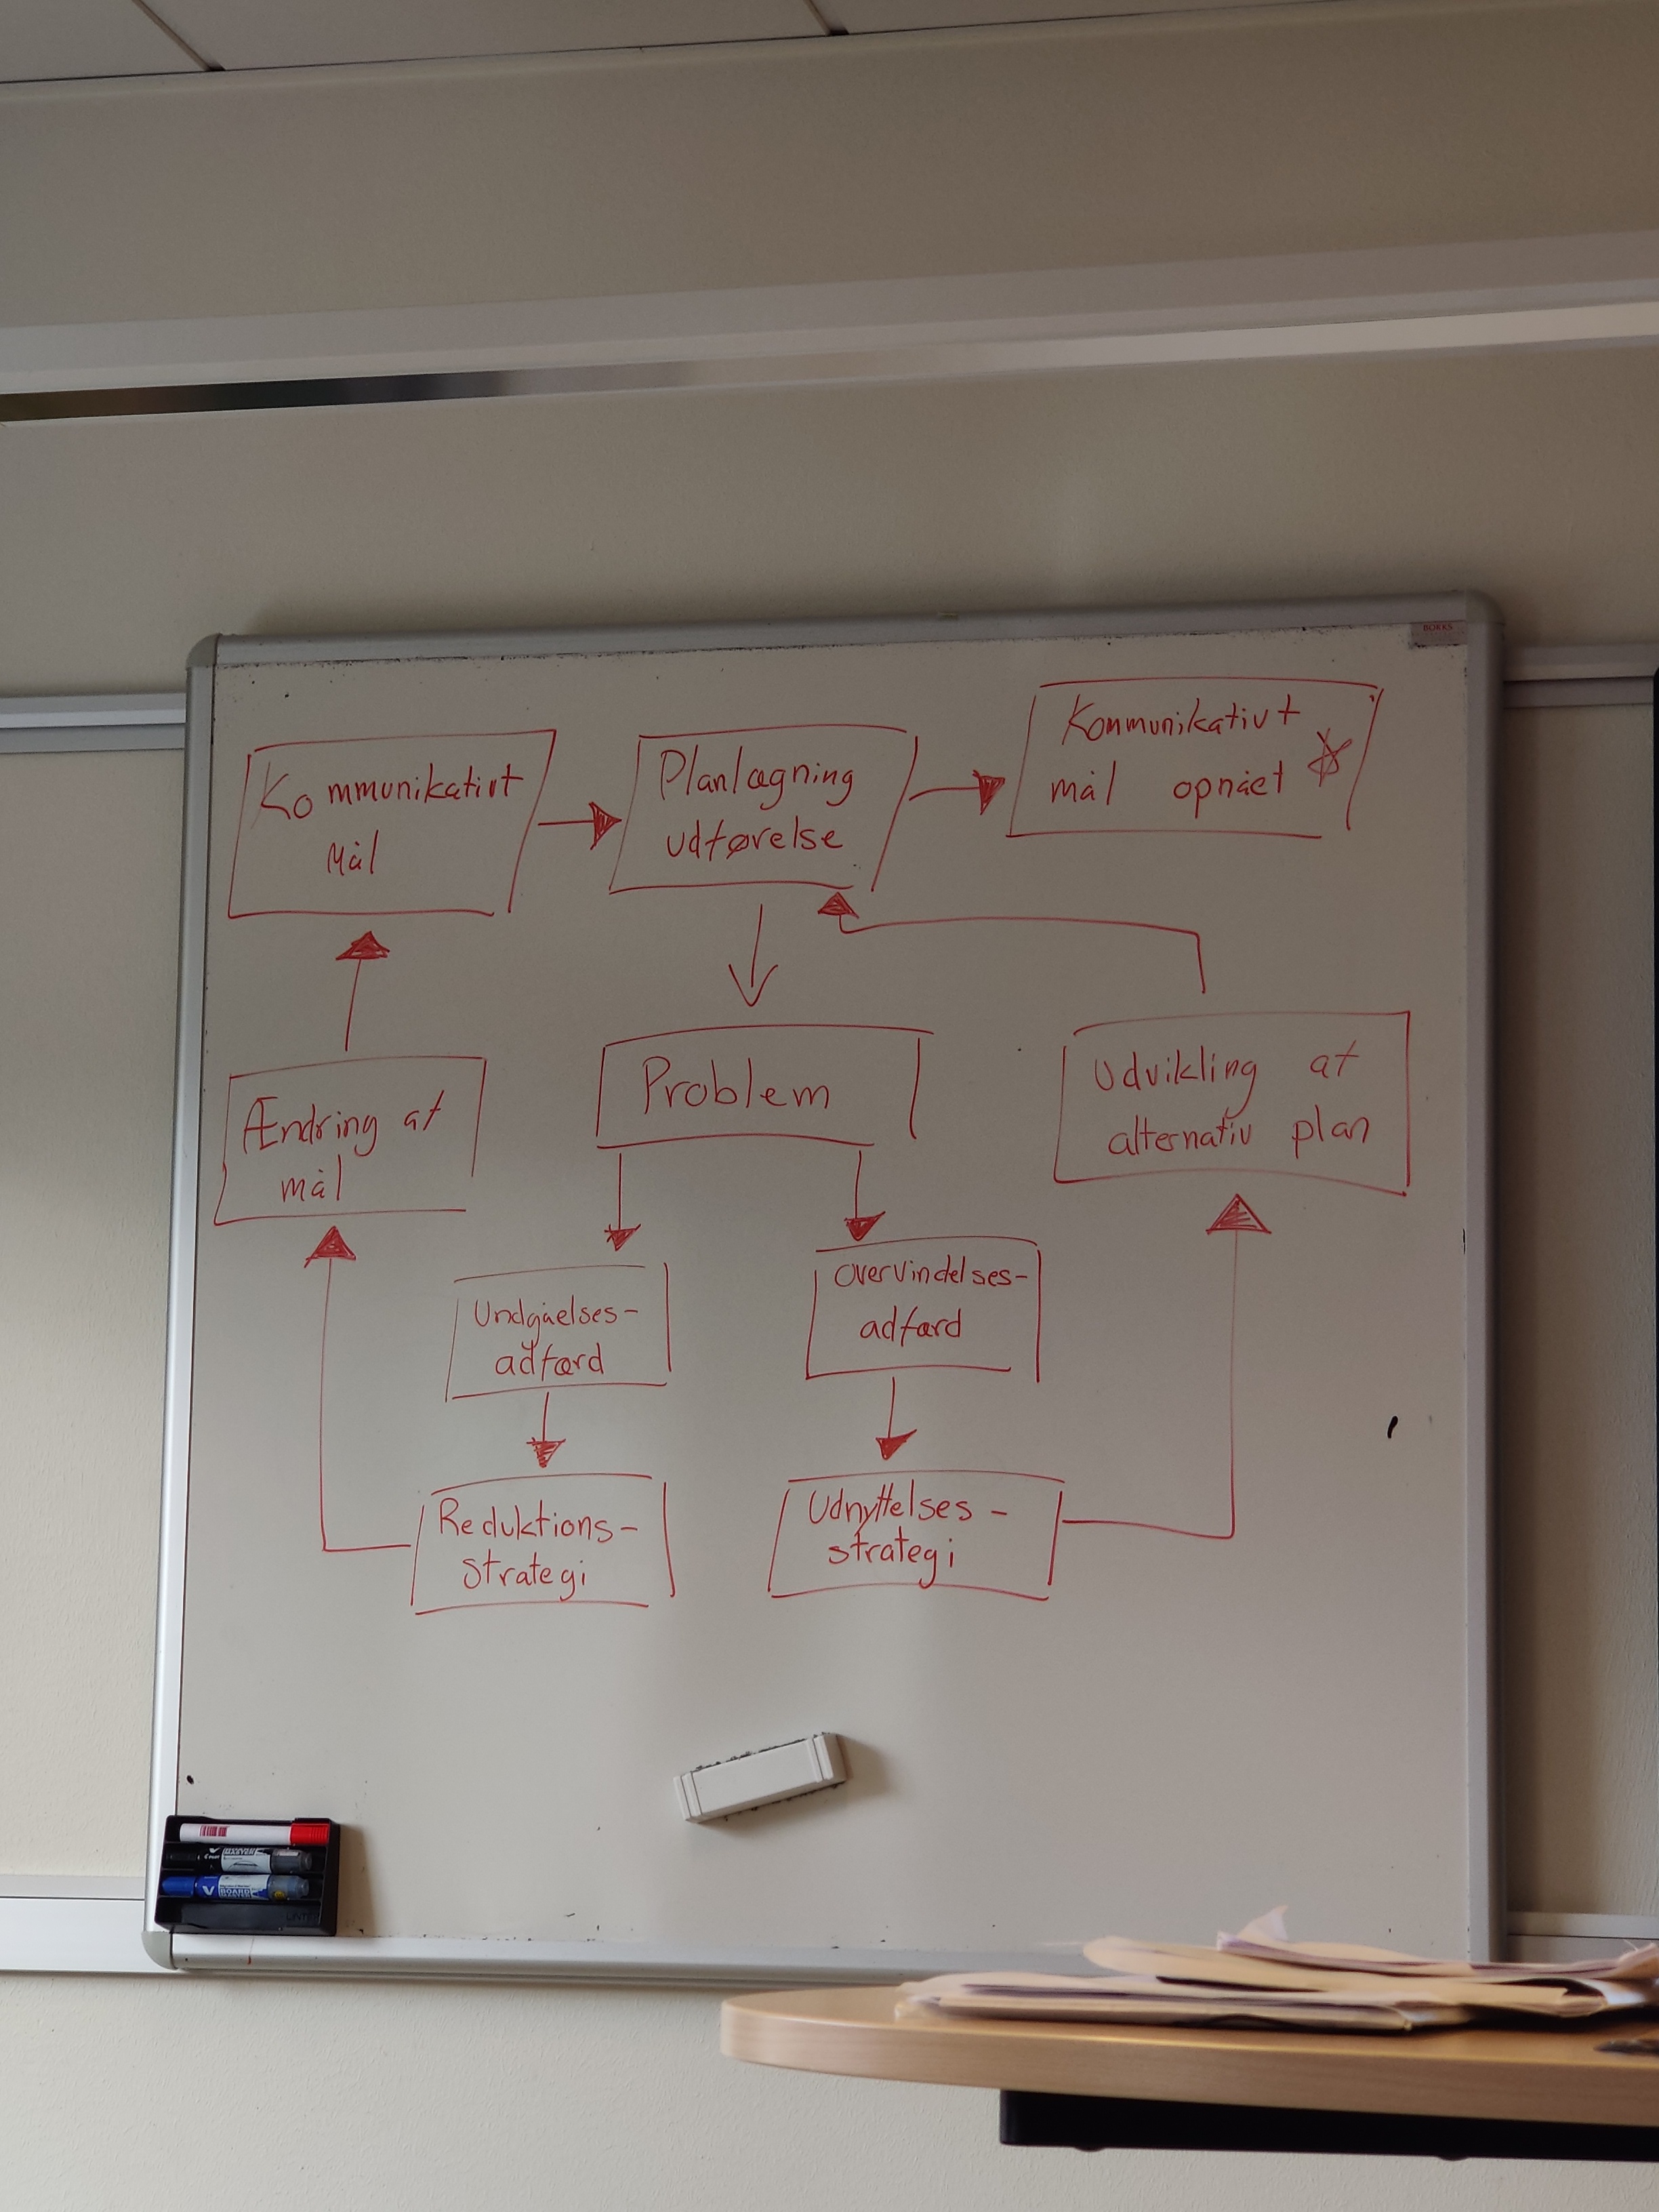 BORKS
Kommunikativt
Mål
Planlægning
udførelse
Kommunikativt
mål opnået
Ændring af
mål
Problem
Udvikling af
alternativ plan
Undgåelses-
adfærd
Overvindelses-
adfærd
Reduktions-
strategi
Udnyttelses-
strategi
BOARD